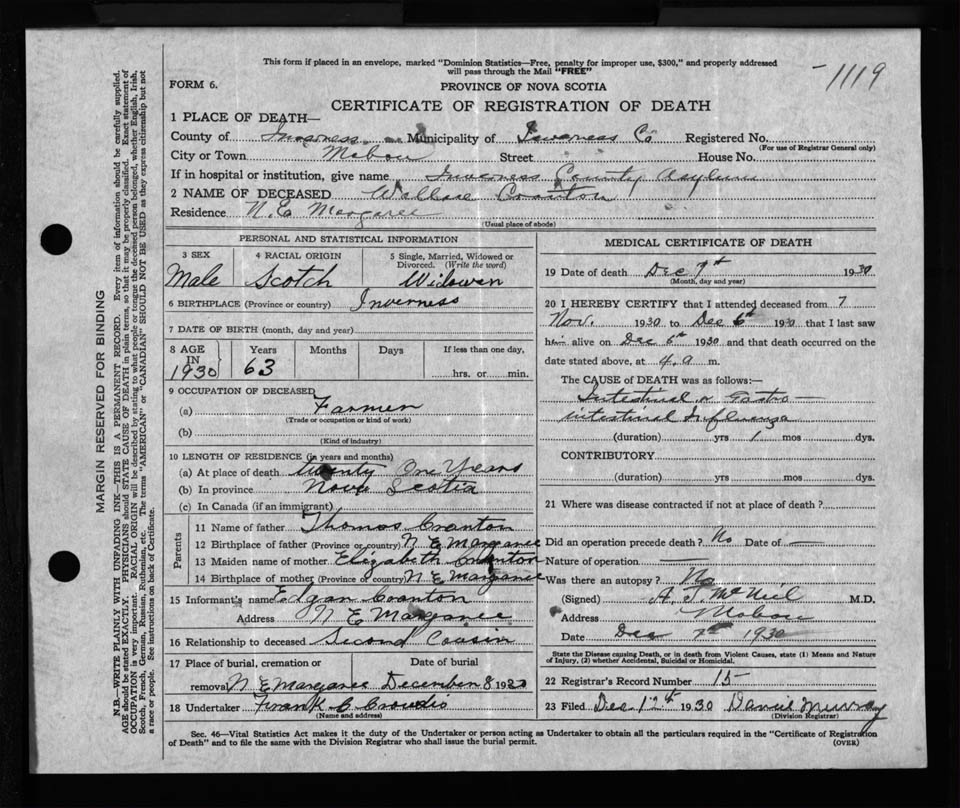 This form if placed in an envelope, marked "Dominion Statistics—Free, penalty for improper use, $300," and properly addressed
will pass through the Mail "FREE"
1119
FORM 6.
PROVINCE OF NOVA SCOTIA
CERTIFICATE OF REGISTRATION OF DEATH
1 PLACE OF DEATH—
County of Inverness Municipality of Inverness Co Registered No.
(For use of Registrar General only)
City or Town Mabou Street House No.
If in hospital or institution, give name Inverness County Asylum
2 NAME OF DECEASED Wallace Cranton
Residence N.E Margaree
(Usual place of abode)
PERSONAL AND STATISTICAL INFORMATION
3 SEX 4 RACIAL ORIGIN 5 Single, Married, Widowed or Divorced. (Write the word)
Male Scotch Widower
6 BIRTHPLACE (Province or country) Inverness
7 DATE OF BIRTH (month, day and year)
8 AGE IN 1930 Years 63 Months Days If less than one day, hrs. or min.
9 OCCUPATION OF DECEASED
(a) Farmer
(Trade or occupation or kind of work)
(b)
(Kind of industry)
10 LENGTH OF RESIDENCE (in years and months)
(a) At place of death twenty One Years
(b) In province Nova Scotia
(c) In Canada (if an immigrant)
Parents
11 Name of father Thomas Cranton
12 Birthplace of father (Province or country) N E Margaree
13 Maiden name of mother Elizabeth Cranton
14 Birthplace of mother (Province or country) N E Margaree
15 Informant's name Edgar Cranton
Address N E Margaree
16 Relationship to deceased Second Cousin
17 Place of burial, cremation or Date of burial
removal N E Margaree December 8 1930
18 Undertaker Frank C Crowdis
(Name and address)
MEDICAL CERTIFICATE OF DEATH
19 Date of death Dec 7th 1930
(Month, day and year)
20 I HEREBY CERTIFY that I attended deceased from 7
Nov. 1930 to Dec 6th 1930 that I last saw
him alive on Dec 6th 1930 and that death occurred on the
date stated above, at 4.a m.
The CAUSE of DEATH was as follows:—
Intestinal or Gastro—
intestinal Influenza
(duration) yrs 1 mos dys.
CONTRIBUTORY
(duration) yrs mos dys.
21 Where was disease contracted if not at place of death?
Did an operation precede death? No Date of —
Nature of operation —
Was there an autopsy? No
(Signed) A. J. McNeil M.D.
Address Mabou
Date Dec 7th 1930
State the Disease causing Death, or in death from Violent Causes, state (1) Means and Nature
of Injury, (2) whether Accidental, Suicidal or Homicidal.
22 Registrar's Record Number 15
23 Filed Dec. 12th 1930 Daniel Murray
(Division Registrar)
Sec. 46—Vital Statistics Act makes it the duty of the Undertaker or person acting as Undertaker to obtain all the particulars required in the "Certificate of Registration
of Death" and to file the same with the Division Registrar who shall issue the burial permit.
(OVER)
MARGIN RESERVED FOR BINDING
N.B.—WRITE PLAINLY WITH UNFADING INK—THIS IS A PERMANENT RECORD. Every item of information should be carefully supplied.
AGE should be stated EXACTLY. PHYSICIANS should STATE CAUSE OF DEATH in plain terms, so that it may be properly classified. Exact statement of
OCCUPATION is very important. RACIAL ORIGIN will be described by stating to what people or tongue the deceased person belonged, whether English, Irish,
Scotch, French, German, Russian, Ruthenian, etc. The terms "AMERICAN" or "CANADIAN" SHOULD NOT BE USED as they express citizenship but not
a race or people. See instructions on back of Certificate.